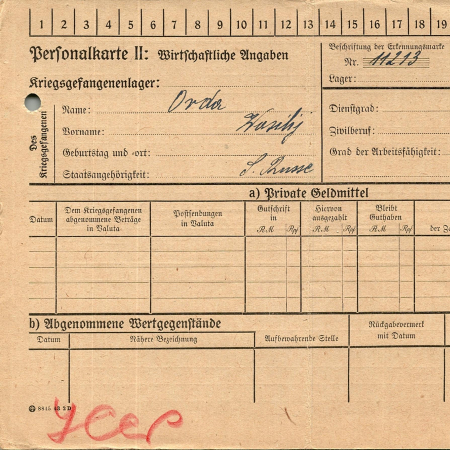 1 2 3 4 5 6 7 8 9 10 11 12 13 14 15 16 17 18 19
Personalkarte II: Wirtschaftliche Angaben
Beschriftung der Erkennungsmarke
Nr. 11213
Kriegsgefangenenlager:
Lager:
Des Kriegsgefangenen
Name: Orda
Vorname: Wasilij
Geburtstag und -ort:
Staatsangehörigkeit: S. Russe
Dienstgrad:
Zivilberuf:
Grad der Arbeitsfähigkeit:
a) Private Geldmittel
Datum
Dem Kriegsgefangenen abgenommene Beträge in Valuta
Postsendungen in Valuta
Gutschrift in
RM Rpf
Hiervon ausgezahlt
RM Rpf
Bleibt Guthaben
RM Rpf
b) Abgenommene Wertgegenstände
Datum
Nähere Bezeichnung
Aufbewahrende Stelle
Rückgabevermerk mit Datum